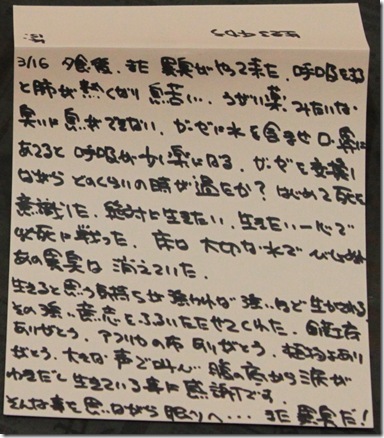 3/16 夕食後、また異臭がやって来た。呼吸をする
と肺が熱くなり息苦しい。うがい薬みたいな
臭いに息ができない。ガーゼに水を含ませ口・鼻に
あてると呼吸が少し楽になる。ガーゼを交換し
ながらどのくらいの時が過たか?はじめて死を
意識した。絶対に生きたい。生きたい一心で
必死に戦った。床は大切な水でびしょぬれ
あの異臭は消えていた。
生きると思う気持ちが強ければ強いほど生がある。
その強い意志をふるいたたせてくれた。
ありがとう。アフリカの布ありがとう。植物よあり
がとう。大きな声で叫んだ 腹の底から涙が
わきだし生きている事に感謝です。
そんな事を思いながら眠りへ・・・ また異臭だ!